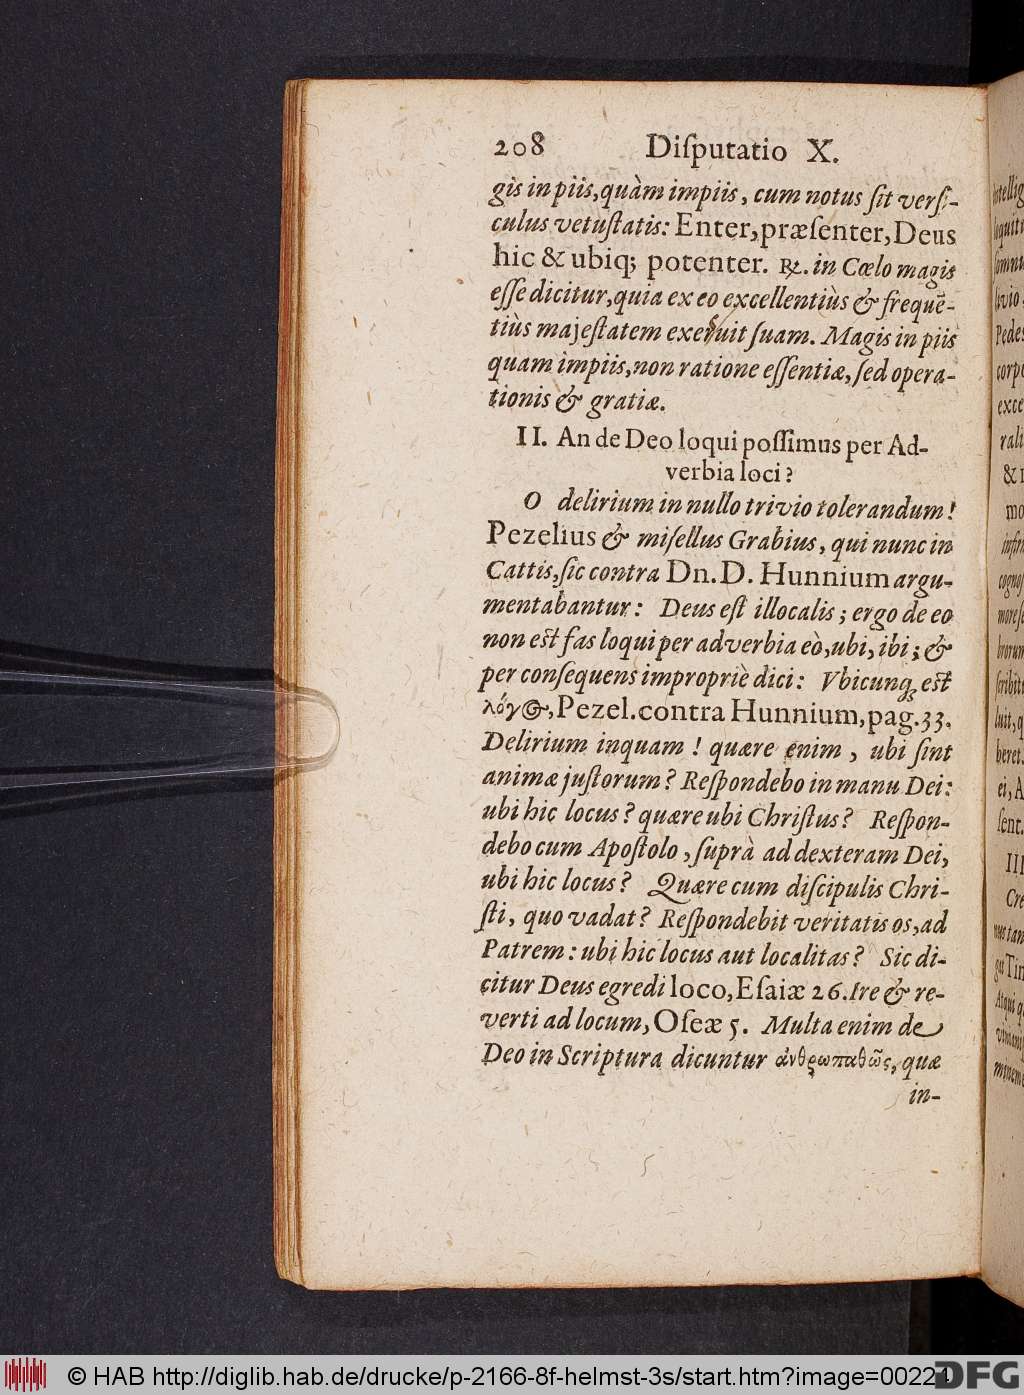 208 Diſputatio X.
gis in piis, quàm impiis, cum notus ſit verſi-
culus vetuſtatis: Enter, præſenter, Deus
hic & ubiq; potenter. ℞. in Cœlo magis
eſſe dicitur, quia ex eo excellentiùs & frequē-
tiùs majeſtatem exeruit ſuam. Magis in piis
quam impiis, non ratione eſſentiæ, ſed opera-
tionis & gratiæ.
II. An de Deo loqui poſſimus per Ad-
verbia loci?
O delirium in nullo trivio tolerandum!
Pezelius & miſellus Grabius, qui nunc in
Cattis, ſic contra Dn. D. Hunnium argu-
mentabantur: Deus eſt illocalis; ergo de eo
non est fas loqui per adverbia eò, ubi, ibi; &
per conſequens impropriè dici: Vbicunq; est
λόγ⊙, Pezel. contra Hunnium, pag. 33.
Delirium inquam! quære enim, ubi ſint
animæ juſtorum? Reſpondebo in manu Dei:
ubi hic locus? quære ubi Chriſtus? Reſpon-
debo cum Apoſtolo, ſuprà ad dexteram Dei,
ubi hic locus? Quære cum diſcipulis Chri-
ſti, quo vadat? Reſpondebit veritatis os, ad
Patrem: ubi hic locus aut localitas? Sic di-
citur Deus egredi loco, Eſaiæ 26. Ire & re-
verti ad locum, Oſeæ 5. Multa enim de
Deo in Scriptura dicuntur ἀνθρωπαθῶς, quæ
in-
© HAB http://diglib.hab.de/drucke/p-2166-8f-helmst-3s/start.htm?image=00224
DFG